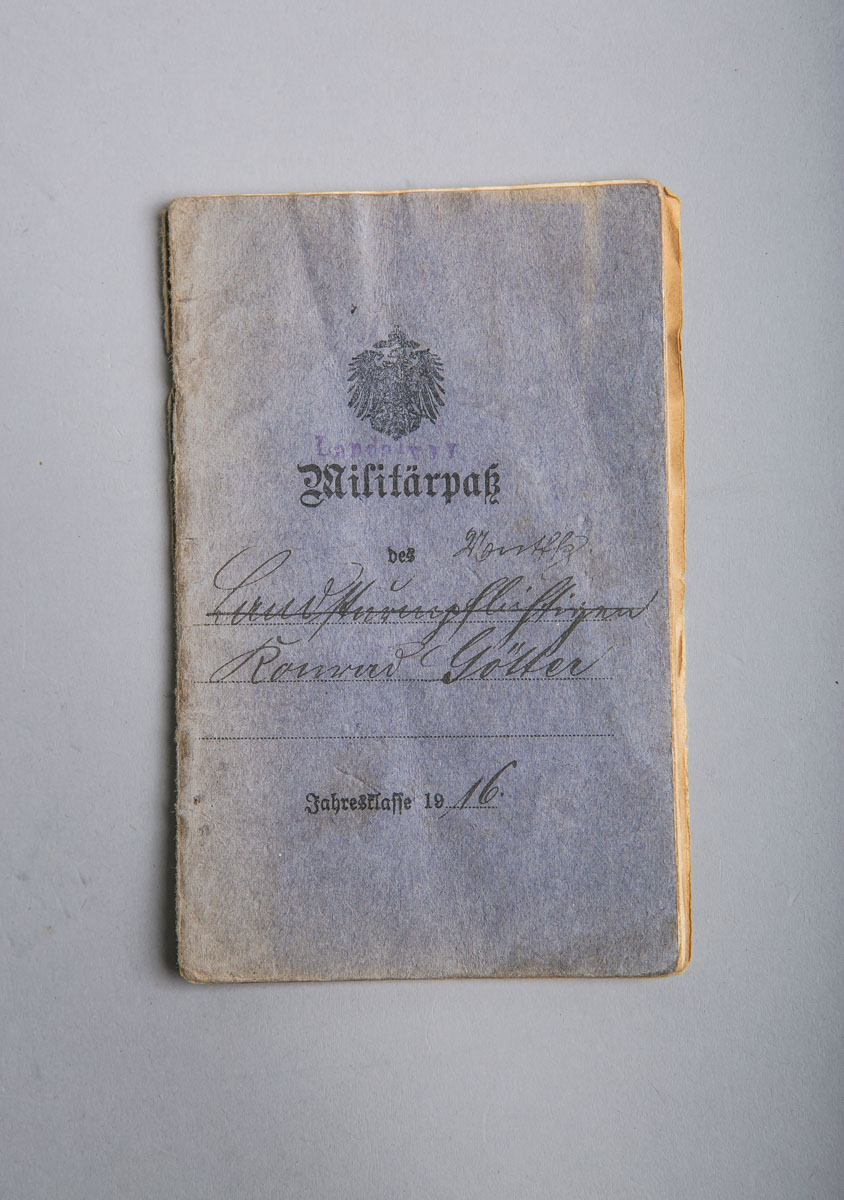 Militärpaß
des
Landsturmpflichtigen
Konrad Götter
Jahresklasse 1916.